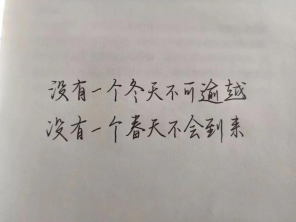 没有一个冬天不可逾越
没有一个春天不会到来